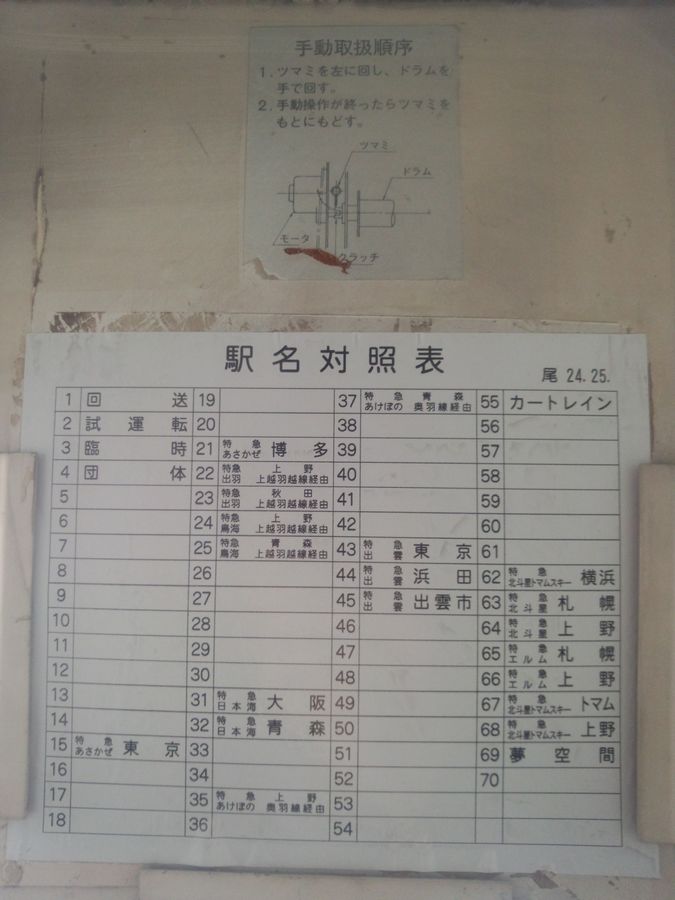 手動取扱順序
1. ツマミを左に回し、ドラムを
手で回す。
2. 手動操作が終ったらツマミを
もとにもどす。
ツマミ
ドラム
モータ
クラッチ
駅名対照表
尾 24.25.
1 回送
2 試運転
3 臨時
4 団体
5
6
7
8
9
10
11
12
13
14
15 特急 あさかぜ 東京
16
17
18
19
20
21 特急 あさかぜ 博多
22 特急 出羽 上野 上越羽越線経由
23 特急 出羽 秋田 上越羽越線経由
24 特急 鳥海 上野 上越羽越線経由
25 特急 鳥海 青森 上越羽越線経由
26
27
28
29
30
31 特急 日本海 大阪
32 特急 日本海 青森
33
34
35 特急 あけぼの 上野 奥羽線経由
36
37 特急 あけぼの 青森 奥羽線経由
38
39
40
41
42
43 特急 出雲 東京
44 特急 出雲 浜田
45 特急 出雲 出雲市
46
47
48
49
50
51
52
53
54
55 カートレイン
56
57
58
59
60
61
62 特急 北斗星トマムスキー 横浜
63 特急 北斗星 札幌
64 特急 北斗星 上野
65 特急 エルム 札幌
66 特急 エルム 上野
67 特急 北斗星トマムスキー トマム
68 特急 北斗星トマムスキー 上野
69 夢空間
70